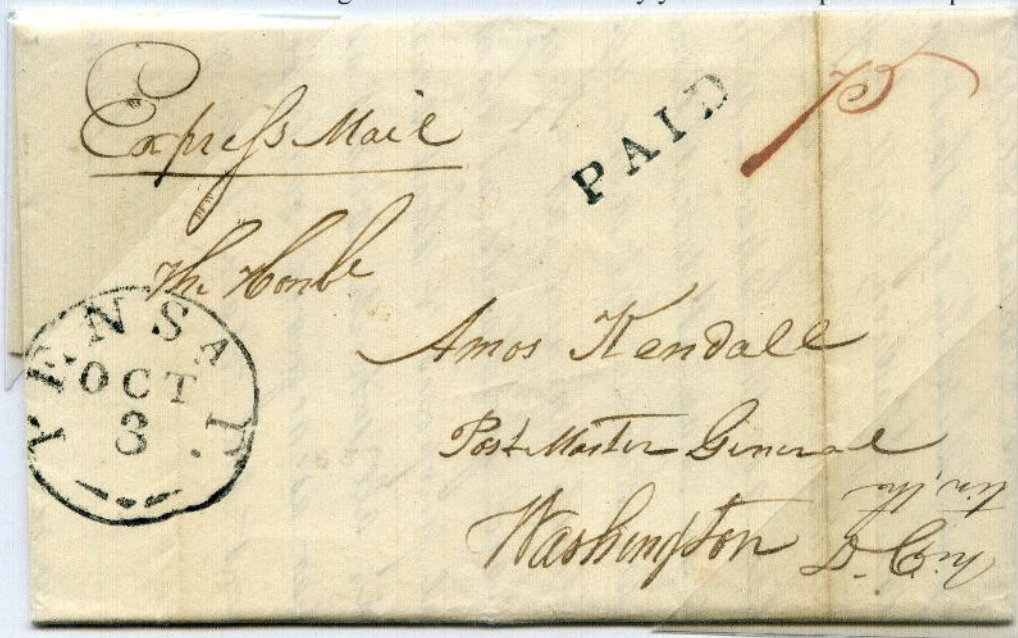 Expreſs Mail
PAID
75
The Honble
Amos Kendall
Post Master General
Washington
PENSA F.
OCT
3